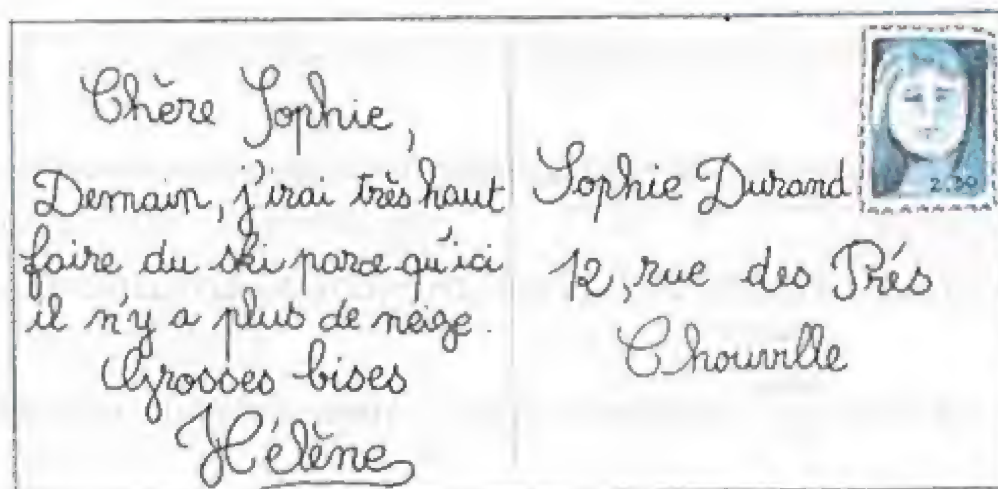 Chère Sophie,
Demain, j'irai très haut
faire du ski parce qu'ici
il n'y a plus de neige.
Grosses bises
Hélène
2.30
Sophie Durand
12, rue des Prés
Chouville